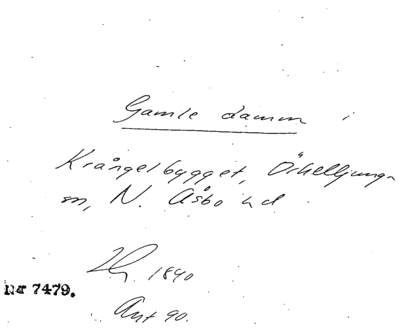 Gamle damm i
Krångelbygget, Örkelljunga
m, N. Åsbo hd
1890
Nr 7479.
Ant 90.